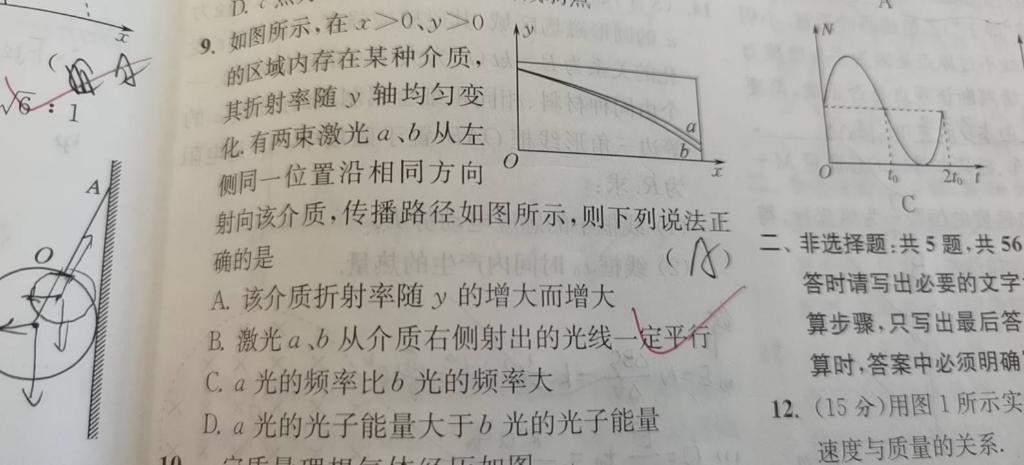 x
√6 : 1
A
O
9. 如图所示,在 x＞0,y≤0
的区域内存在某种介质,
其折射率随 y 轴均匀变
化.有两束激光 a、b 从左
侧同一位置沿相同方向
射向该介质,传播路径如图所示,则下列说法正
确的是
(A)
A. 该介质折射率随 y 的增大而增大
B. 激光 a、b 从介质右侧射出的光线一定平行
C. a 光的频率比 b 光的频率大
D. a 光的光子能量大于 b 光的光子能量
y
a
b
O
x
A
N
O
t₀
2t₀
t
C
二、非选择题:共 5 题,共 56
答时请写出必要的文字
算步骤,只写出最后答
算时,答案中必须明确
12. (15 分)用图 1 所示实
速度与质量的关系.